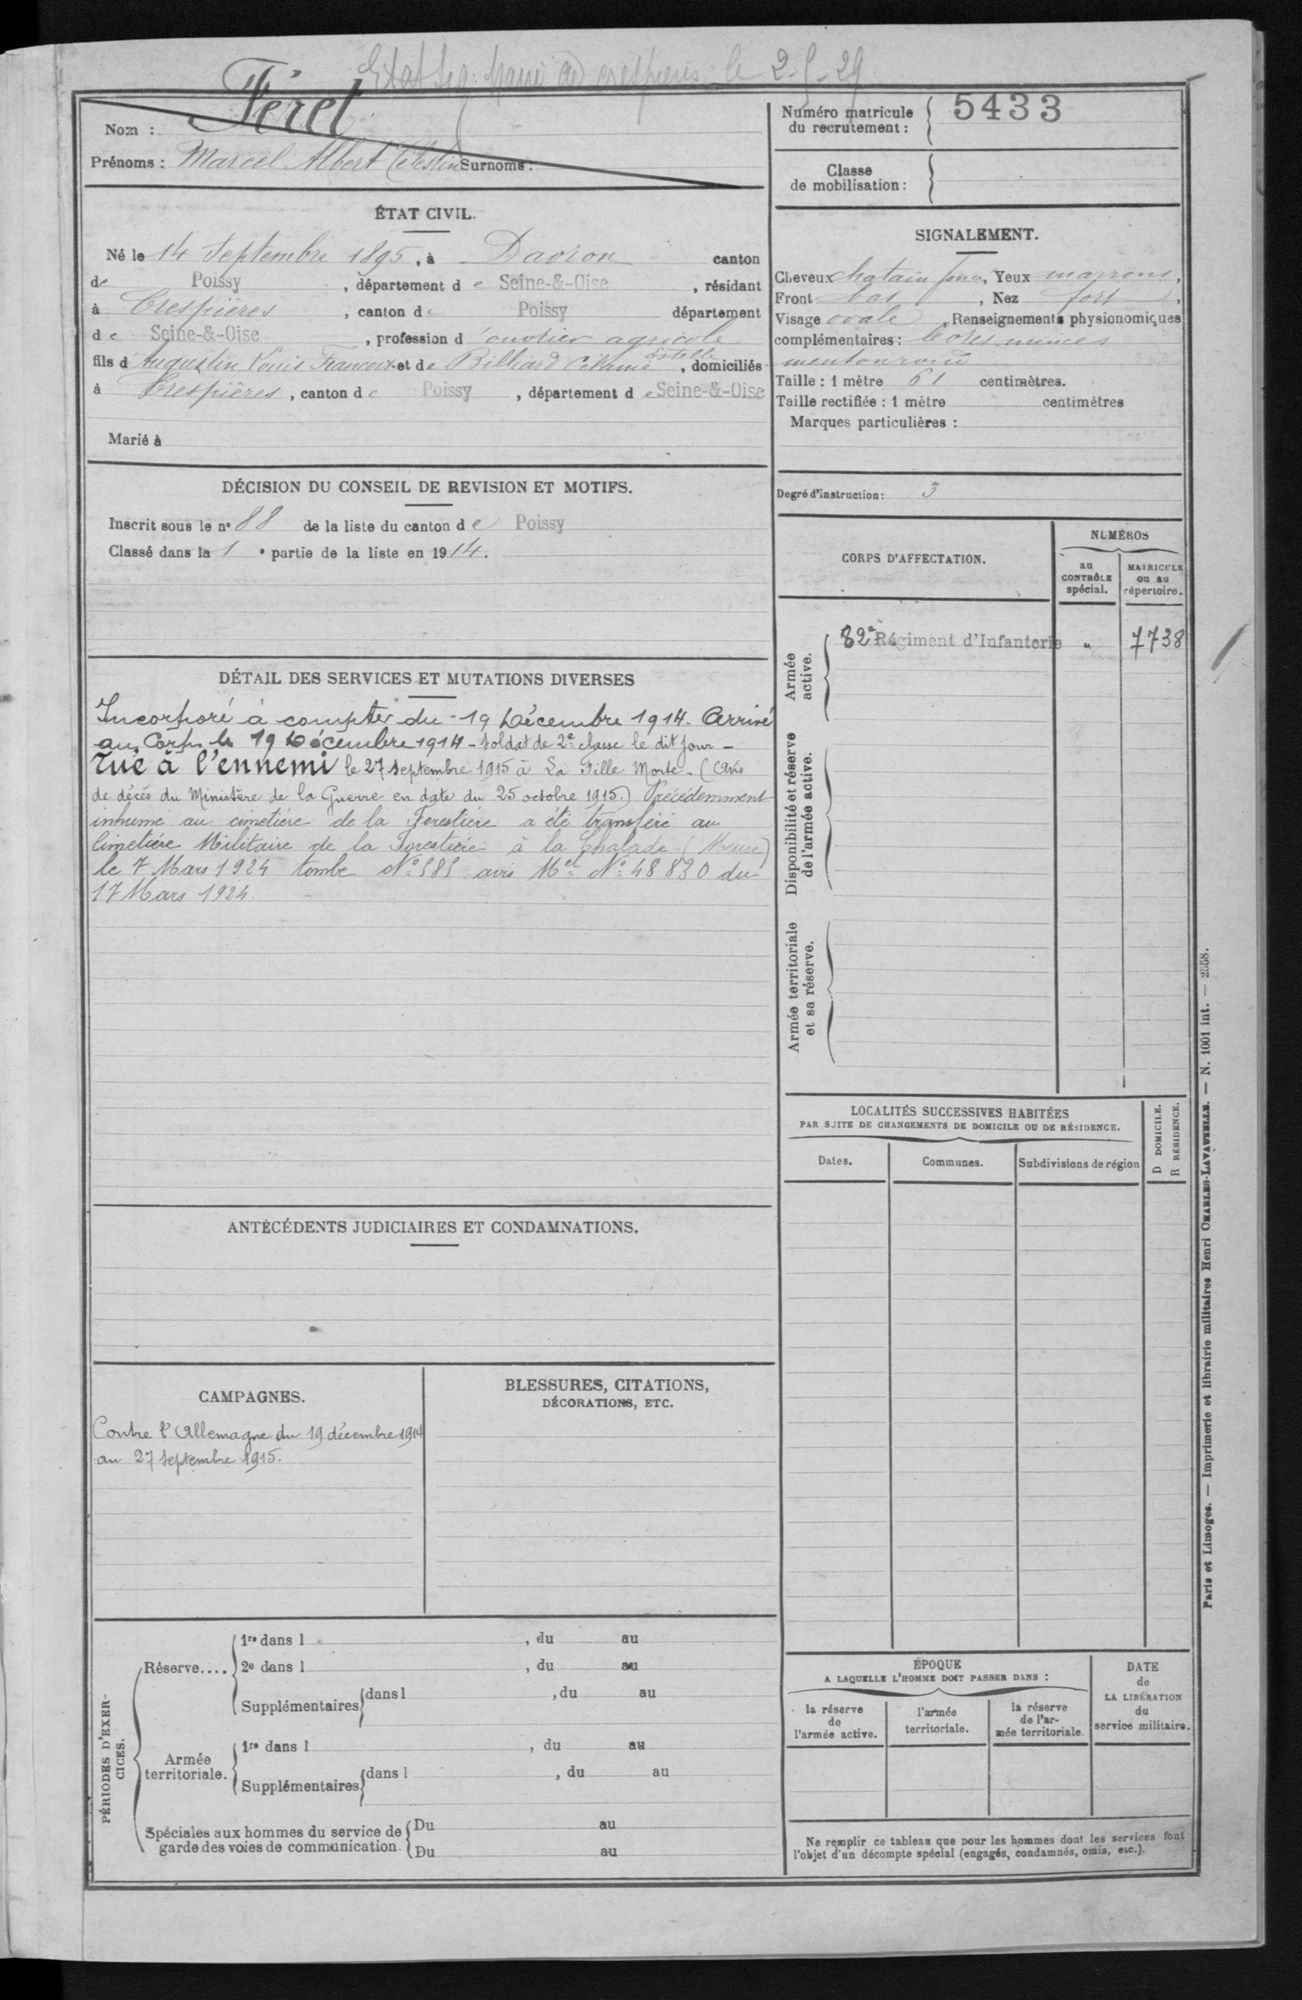 Etat Seq. Mairie de Crespières le 2-5-29
Nom : Féret
Prénoms : Marcel Albert Célestin Surnoms :
Numéro matricule du recrutement : 5433
Classe de mobilisation :
ÉTAT CIVIL.
Né le 14 Septembre 1895, à Davron canton
de Poissy, département de Seine-&-Oise, résidant
à Crespières, canton de Poissy département
de Seine-&-Oise, profession d'ouvrier agricole
fils d'Augustin Louis François et de Billiard Célanie Estelle, domiciliés
à Crespières, canton de Poissy, département de Seine-&-Oise
Marié à
SIGNALEMENT.
Cheveux chatain foncé, Yeux marrons,
Front bas, Nez fort,
Visage ovale, Renseignements physionomiques
complémentaires : lèvres minces
menton rond
Taille : 1 mètre 61 centimètres.
Taille rectifiée : 1 mètre centimètres
Marques particulières :
Degré d'instruction : 3
DÉCISION DU CONSEIL DE REVISION ET MOTIFS.
Inscrit sous le n° 88 de la liste du canton de Poissy
Classé dans la 1e partie de la liste en 1914.
CORPS D'AFFECTATION.
NUMÉROS
au CONTRÔLE spécial.
MATRICULE ou au répertoire.
Armée active.
82e Régiment d'Infanterie " 7738
Disponibilité et réserve de l'armée active.
Armée territoriale et sa réserve.
DÉTAIL DES SERVICES ET MUTATIONS DIVERSES
Incorporé à compter du 19 Décembre 1914. Arrivé
au Corps le 19 Décembre 1914 - soldat de 2e classe le dit jour -
Tué à l'ennemi le 27 septembre 1915 à La Fille Morte - (Avis
de décès du Ministère de la Guerre en date du 25 octobre 1915.) Précédemment
inhumé au cimetière de la Forestière a été transféré au
Cimetière Militaire de la Forestière à la Chalade (Meuse)
le 7 Mars 1924 tombe N° 585 avis Mel N° 48830 du
17 Mars 1924
LOCALITÉS SUCCESSIVES HABITÉES
PAR SUITE DE CHANGEMENTS DE DOMICILE OU DE RÉSIDENCE.
Dates.
Communes.
Subdivisions de région
D DOMICILE.
R RÉSIDENCE.
ANTÉCÉDENTS JUDICIAIRES ET CONDAMNATIONS.
CAMPAGNES.
Contre l'Allemagne du 19 décembre 1914
au 27 septembre 1915.
BLESSURES, CITATIONS,
DÉCORATIONS, ETC.
PÉRIODES D'EXERCICES.
Réserve....
1re dans l , du au
2e dans l , du au
Supplémentaires dans l , du au
Armée territoriale.
1re dans l , du au
Supplémentaires dans l , du au
Spéciales aux hommes du service de
garde des voies de communication.
Du au
Du au
ÉPOQUE
A LAQUELLE L'HOMME DOIT PASSER DANS :
la réserve de l'armée active.
l'armée territoriale.
la réserve de l'armée territoriale.
DATE de LA LIBÉRATION du service militaire.
Ne remplir ce tableau que pour les hommes dont les services font
l'objet d'un décompte spécial (engagés, condamnés, omis, etc.).
Paris et Limoges. — Imprimerie et librairie militaires Henri CHARLES-LAVAUZELLE. — N. 1001 int. — 2558.